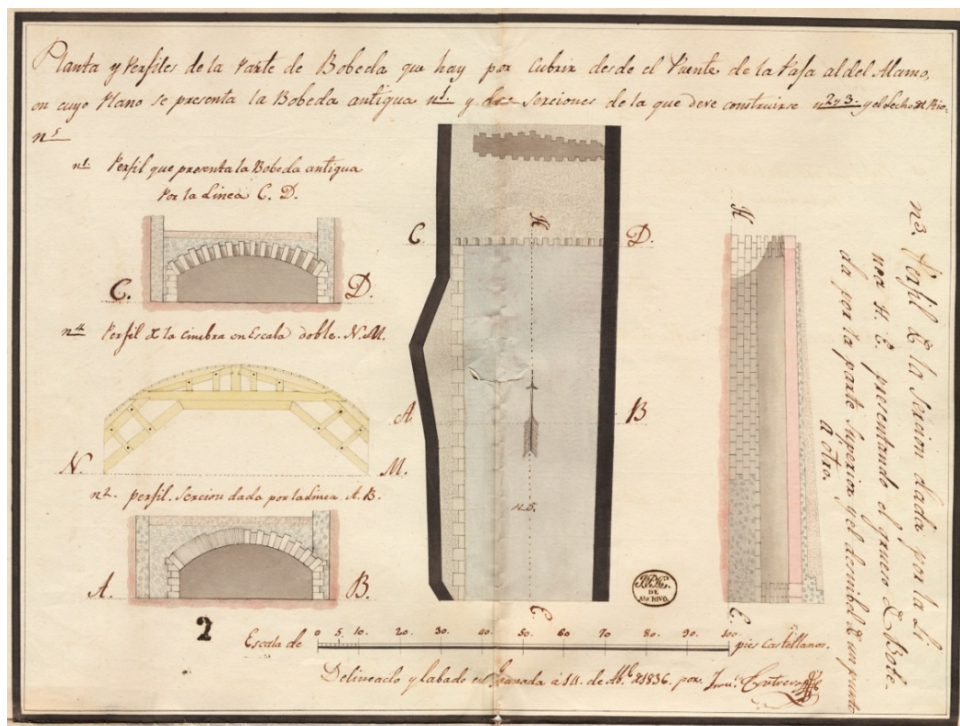 Planta y Perfiles de la Parte de Bobeda que hay por Cubrir desde el Puente de la Paja al del Alamo,
en cuyo Plano se presenta la Bobeda antigua n1. y las Secciones de la que deve construirse n2y3. y el Lecho del Rio.
n5
n1. Perfil que presenta la Bobeda antigua
Por la Linea C. D.
C. D.
n4 Perfil de la cimbra en Escala doble. N. M.
N. M.
n2. perfil. Seccion dada por la linea A. B.
A. B.
C. H D.
A B
n.5.
E.
H.
E.
n3. Perfil de la Seccion dada por la Li
nea H. E. presentando el grueso de Bobe-
da por la parte Superior y el desnibel de un punto
a otro.
DE
2
Escala de 0 5. 10. 20. 30. 40. 50. 60 70 80. 90. 100 pies Castellanos.
Delineado y labado en Granada á 14. de Ab.l de 1836. por Contreras